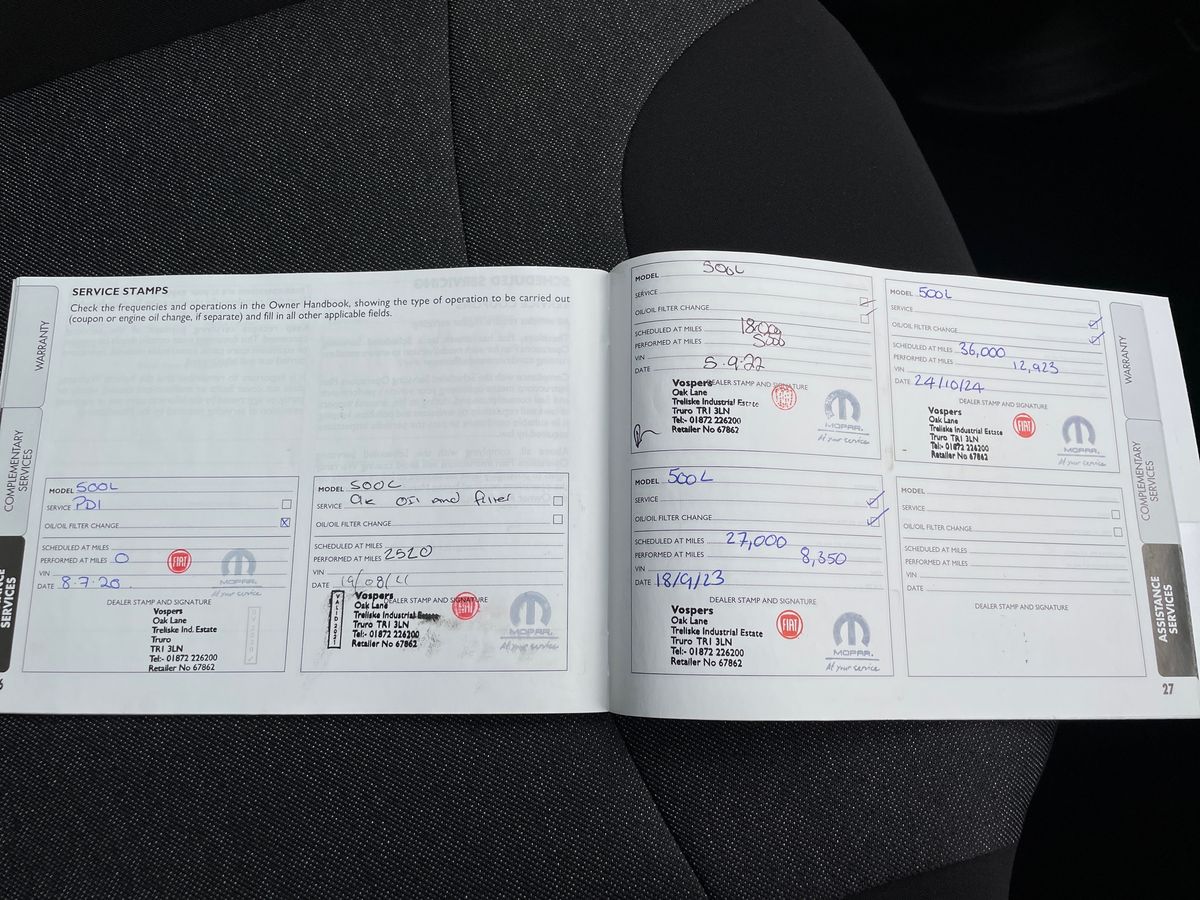 SERVICE STAMPS
Check the frequencies and operations in the Owner Handbook, showing the type of operation to be carried out
(coupon or engine oil change, if separate) and fill in all other applicable fields.
WARRANTY
COMPLEMENTARY
SERVICES
SERVICES
MODEL 500L
SERVICE PDI
OIL/OIL FILTER CHANGE
SCHEDULED AT MILES
PERFORMED AT MILES 0
VIN
DATE 8.7.20.
DEALER STAMP AND SIGNATURE
Vospers
Oak Lane
Treliske Ind. Estate
Truro
TR1 3LN
Tel:- 01872 226200
Retailer No 67862
FIAT
MOPAR.
At your service
MODEL 500L
SERVICE 9k Oil and filter
OIL/OIL FILTER CHANGE
SCHEDULED AT MILES
PERFORMED AT MILES 2520
VIN
DATE 19/08/21
DEALER STAMP AND SIGNATURE
Vospers
Oak Lane
Treliske Industrial Estate
Truro TR1 3LN
Tel:- 01872 226200
Retailer No 67862
FIAT
MOPAR.
At your service
MODEL 500L
SERVICE
OIL/OIL FILTER CHANGE
SCHEDULED AT MILES 18000
PERFORMED AT MILES 5000
VIN
DATE 5.9.22
DEALER STAMP AND SIGNATURE
Vospers
Oak Lane
Treliske Industrial Estate
Truro TR1 3LN
Tel:- 01872 226200
Retailer No 67862
FIAT
MOPAR.
At your service
MODEL 500L
SERVICE
OIL/OIL FILTER CHANGE
SCHEDULED AT MILES 36,000
PERFORMED AT MILES 12,923
VIN
DATE 24/10/24
DEALER STAMP AND SIGNATURE
Vospers
Oak Lane
Treliske Industrial Estate
Truro TR1 3LN
Tel:- 01872 226200
Retailer No 67862
FIAT
MOPAR.
At your service
MODEL 500L
SERVICE
OIL/OIL FILTER CHANGE
SCHEDULED AT MILES 27,000
PERFORMED AT MILES 8,350
VIN
DATE 18/9/23
DEALER STAMP AND SIGNATURE
Vospers
Oak Lane
Treliske Industrial Estate
Truro TR1 3LN
Tel:- 01872 226200
Retailer No 67862
FIAT
MOPAR.
At your service
MODEL
SERVICE
OIL/OIL FILTER CHANGE
SCHEDULED AT MILES
PERFORMED AT MILES
VIN
DATE
DEALER STAMP AND SIGNATURE
WARRANTY
COMPLEMENTARY
SERVICES
ASSISTANCE
SERVICES
27